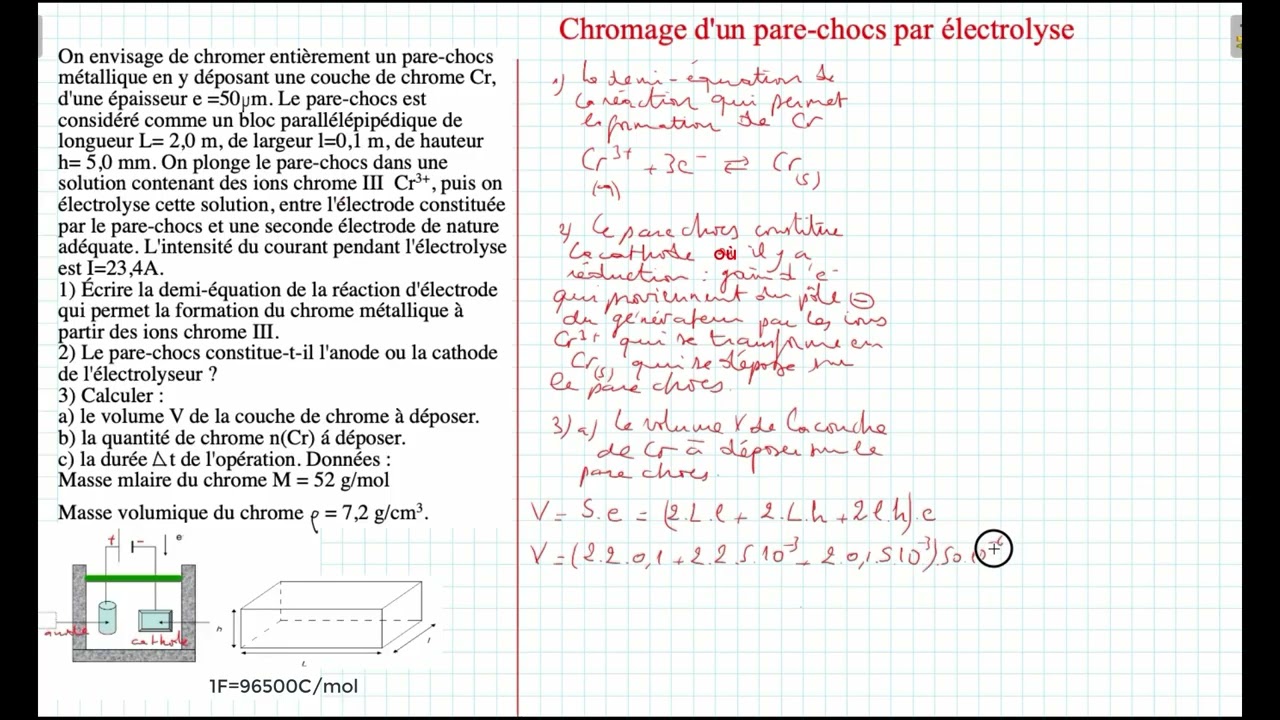 Chromage d'un pare-chocs par électrolyse
On envisage de chromer entièrement un pare-chocs
métallique en y déposant une couche de chrome Cr,
d'une épaisseur e =50μm. Le pare-chocs est
considéré comme un bloc parallélépipédique de
longueur L= 2,0 m, de largeur l=0,1 m, de hauteur
h= 5,0 mm. On plonge le pare-chocs dans une
solution contenant des ions chrome III Cr³⁺, puis on
électrolyse cette solution, entre l'électrode constituée
par le pare-chocs et une seconde électrode de nature
adéquate. L'intensité du courant pendant l'électrolyse
est I=23,4A.
1) Écrire la demi-équation de la réaction d'électrode
qui permet la formation du chrome métallique à
partir des ions chrome III.
2) Le pare-chocs constitue-t-il l'anode ou la cathode
de l'électrolyseur ?
3) Calculer :
a) le volume V de la couche de chrome à déposer.
b) la quantité de chrome n(Cr) á déposer.
c) la durée Δt de l'opération. Données :
Masse mlaire du chrome M = 52 g/mol
Masse volumique du chrome ρ = 7,2 g/cm³.
+ - e⁻
anode
cathode
h
L
l
1F=96500C/mol
1) La demi-équation de
la réaction qui permet
la formation de Cr
Cr³⁺ + 3e⁻ ⇄ Cr(s)
(aq)
2) Le pare chocs constitue
la cathode où il y a
réduction : gain d'e⁻
qui proviennent du pôle ⊖
du générateur par les ions
Cr³⁺ qui se transforme en
Cr(s) qui se dépose sur
le pare chocs.
3) a) Le volume V de la couche
de Cr à déposer sur le
pare chocs.
V = S.e = (2.L.l + 2.L.h + 2.l.h).e
V = (2.2.0,1 + 2.2.5.10⁻³ + 2.0,1.5.10⁻³).50.10⁻⁶